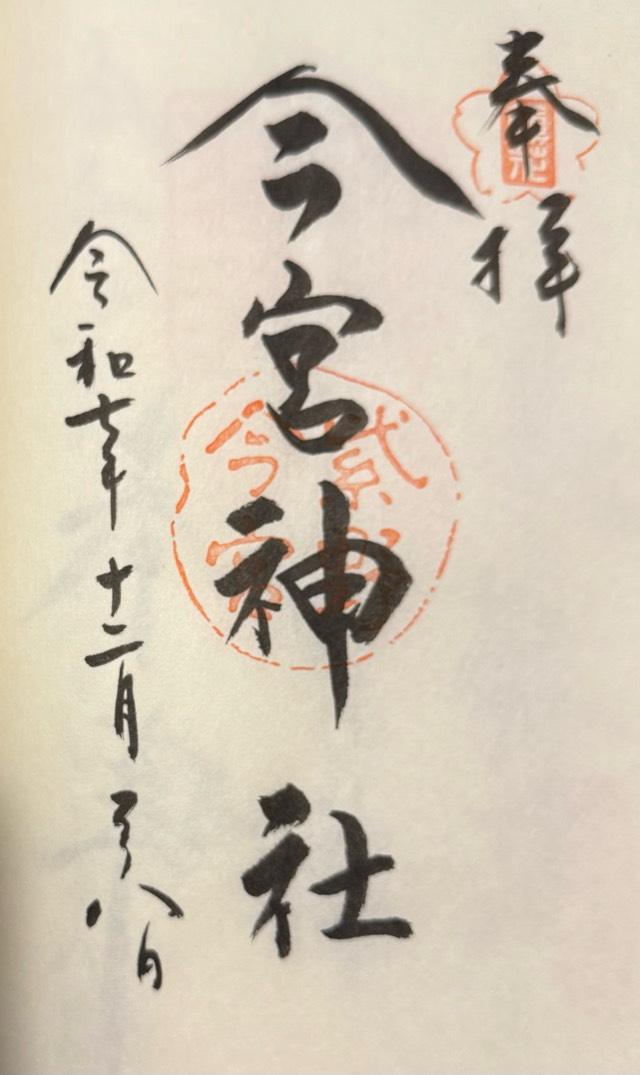 奉拝
今宮神社
今宮
令和七年十二月二十八日